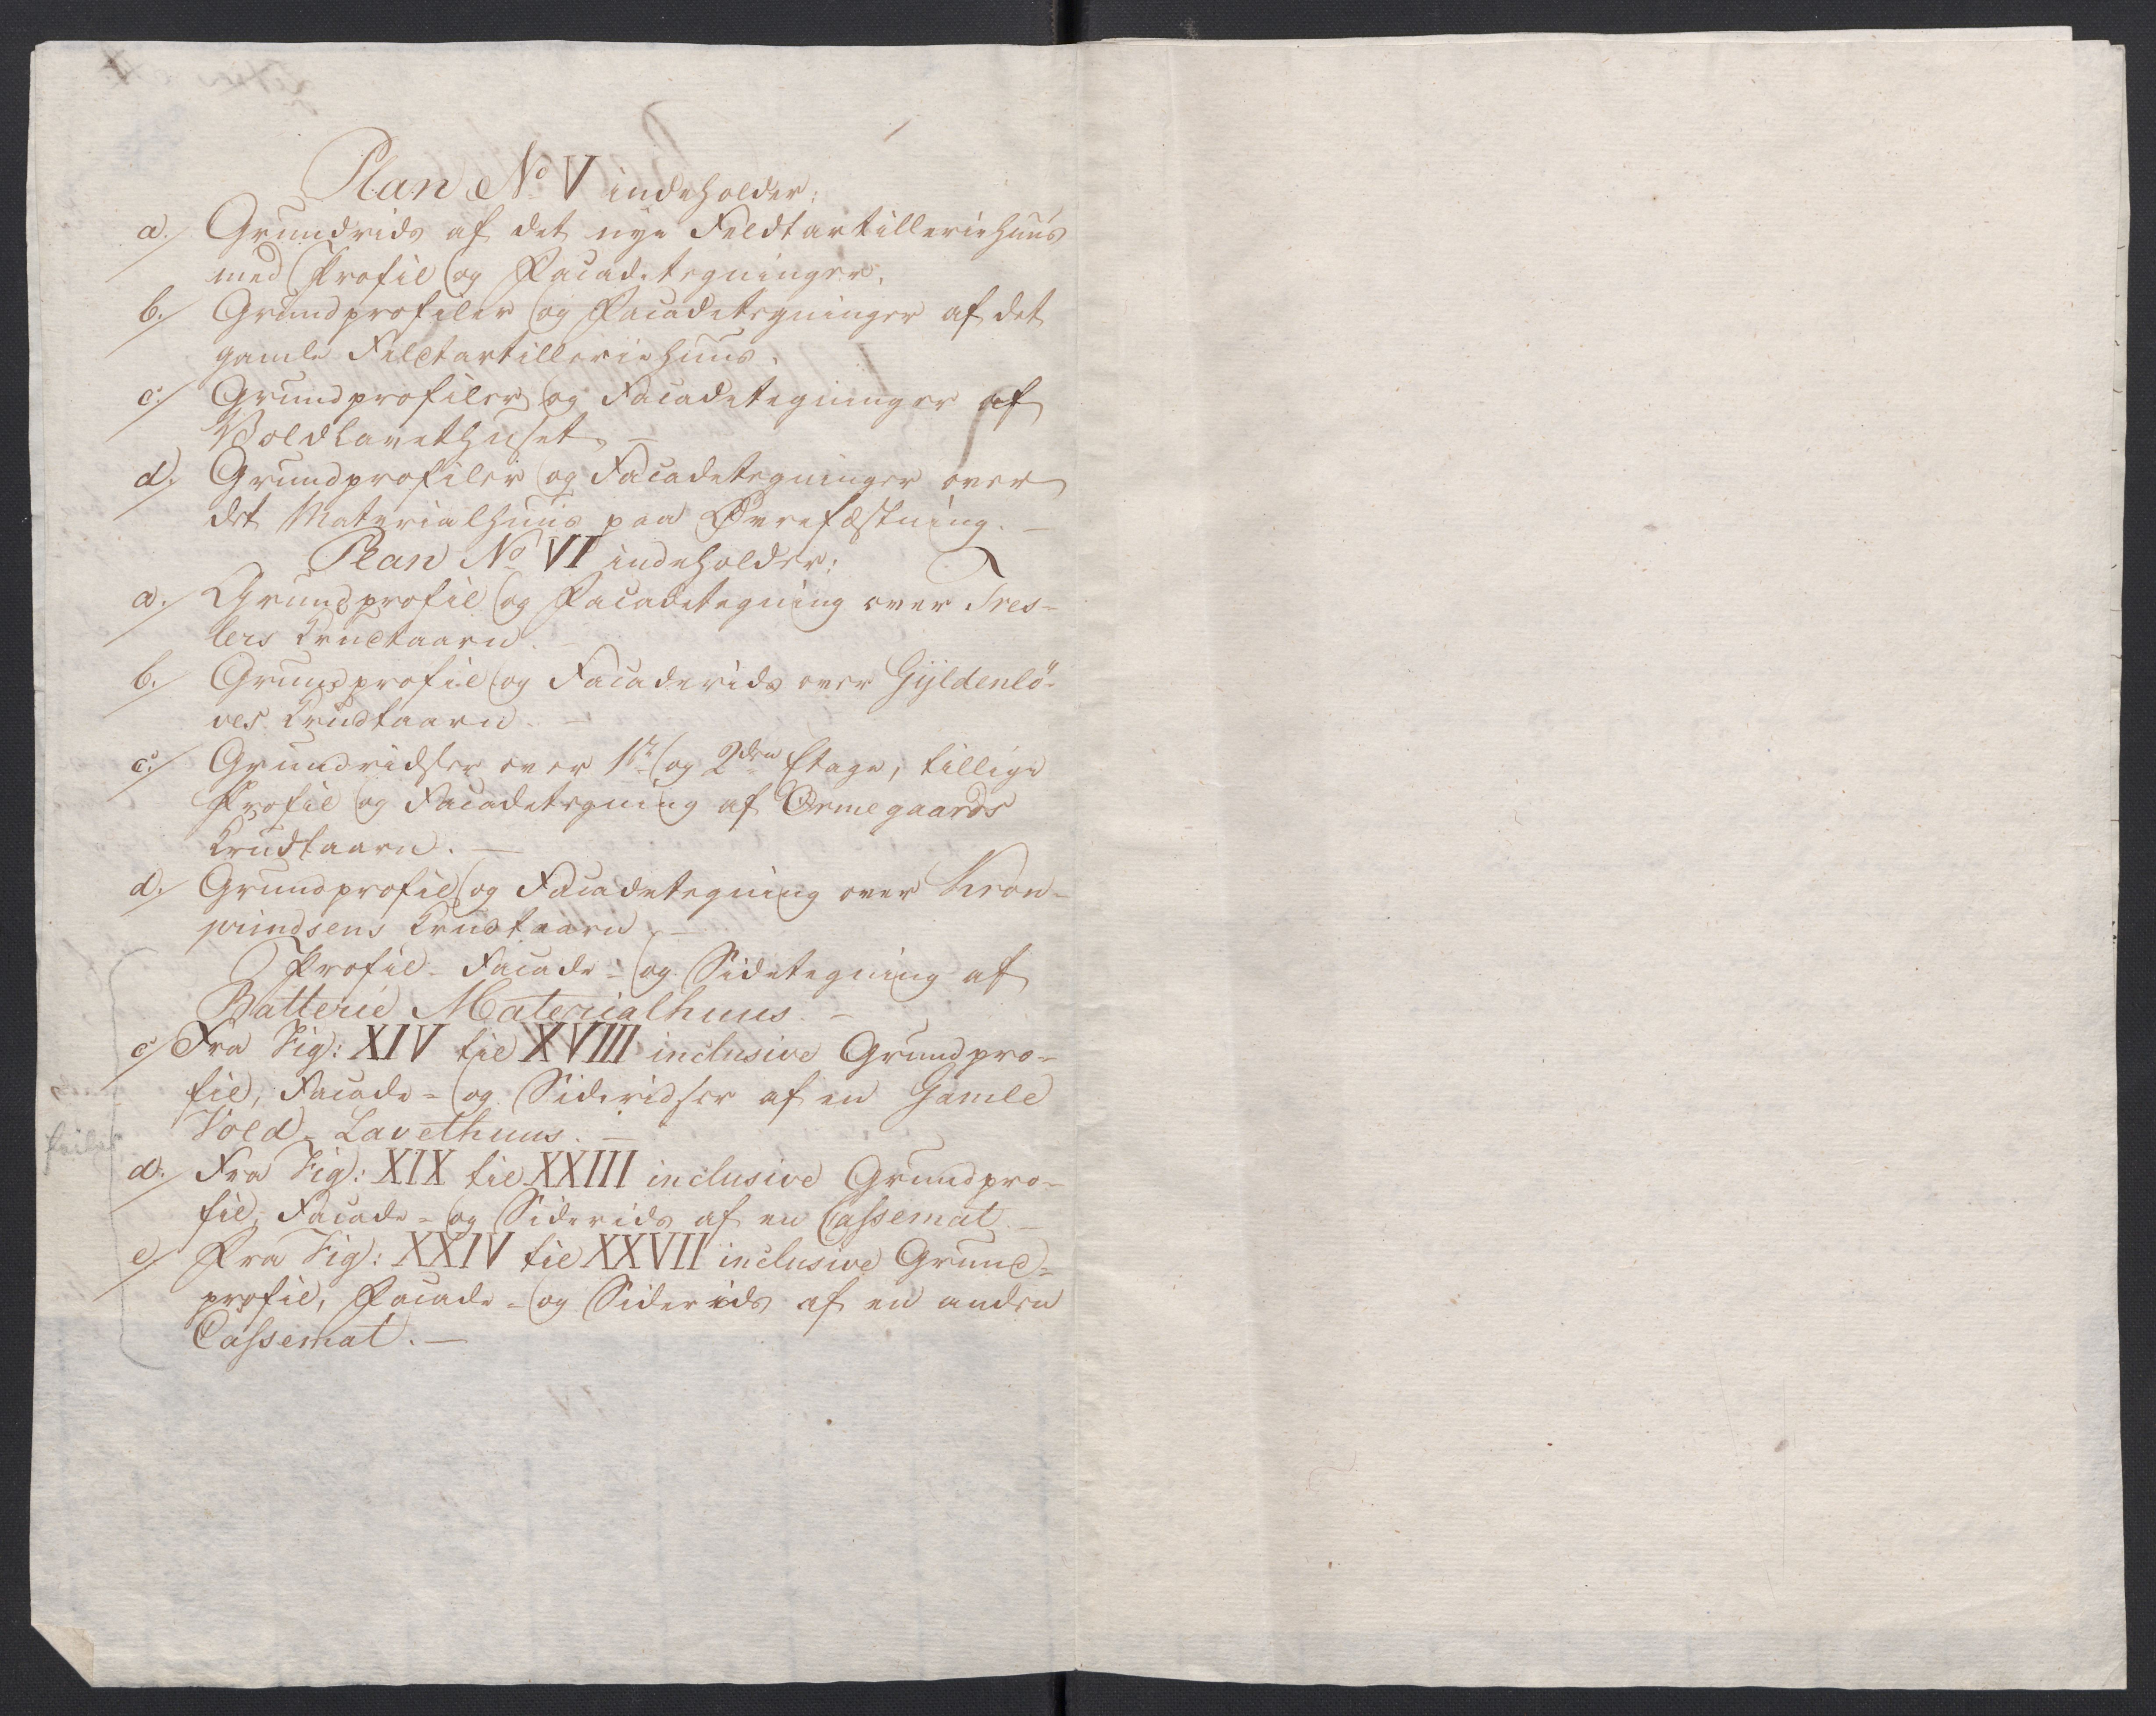 Plan No V indeholder:
a./ Grundrids af det nye Feldtartilleriehuus
med Profil og Facadetegninger.
b./ Grundprofiler og Facadetegninger af det
gamle Feldtartilleriehuus.
c./ Grundprofiler og Facadetegninger af
Voldlavethuset. —
d./ Grundprofiler og Facadetegninger over
det Materialhuus paa Øvrefæstning. —
Plan No VI indeholder:
a./ Grundprofil og Facadetegning over Tres-
lers Krudtaarn.
b./ Grundprofil og Facaderids over Gyldenlö-
ves Krudtaarn. —
c./ Grundridser over 1ste og 2den Etage, tillige
Profil og Facadetegning af Ormegaards
Krudtaarn. —
d./ Grundprofil og Facadetegning over Kron-
prindsens Krudtaarn. —
Profil- Facade- og Sidetegning af
Batterie Materialhuus. —
c/ Fra Fig: XIV til XVIII inclusive Grundpro-
fil, Facade- og Sideridser af en Gamle
Vold- Lavethuus. —
d./ Fra Fig: XIX til XXIII inclusive Grundpro-
fil, Facade- og Siderids af en Cassemat. —
e/ Fra Fig: XXIV til XXVII inclusive Grund-
profil, Facade- og Siderids af en anden
Cassemat. —